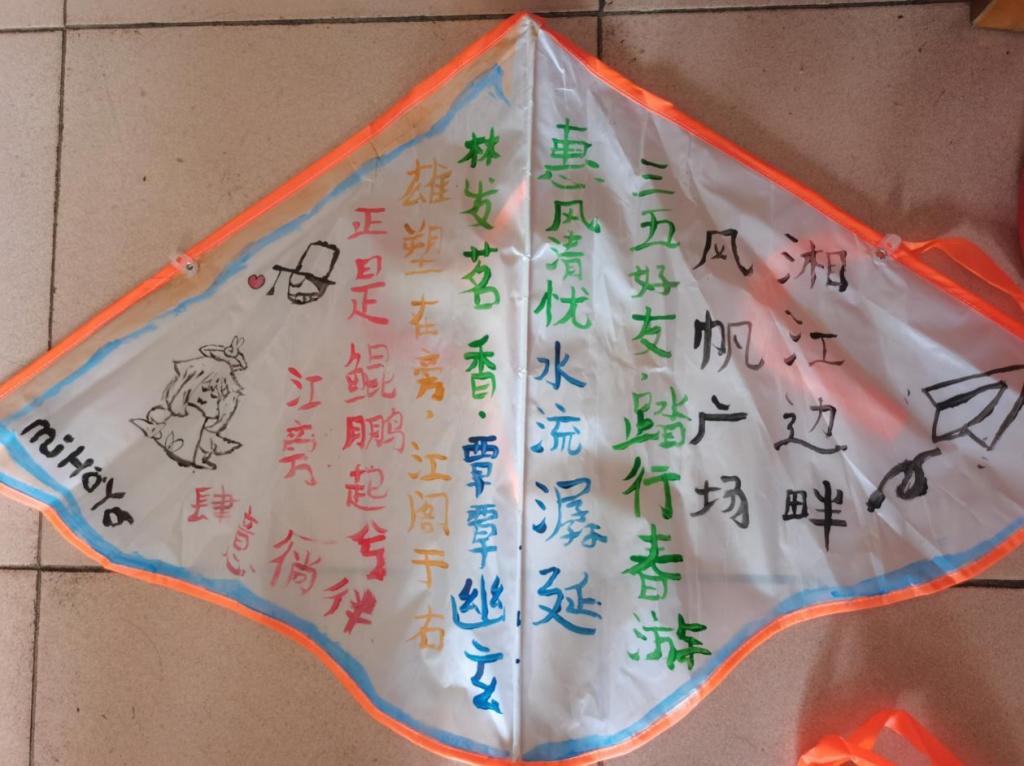 湘江边畔
风帆广场
三五好友,踏行春游
惠风清忧水流潺延
林发茗香.覃覃幽玄
雄塑在旁,江阁于右
正是鲲鹏起兮
江旁徜徉
肆意
miHoYo